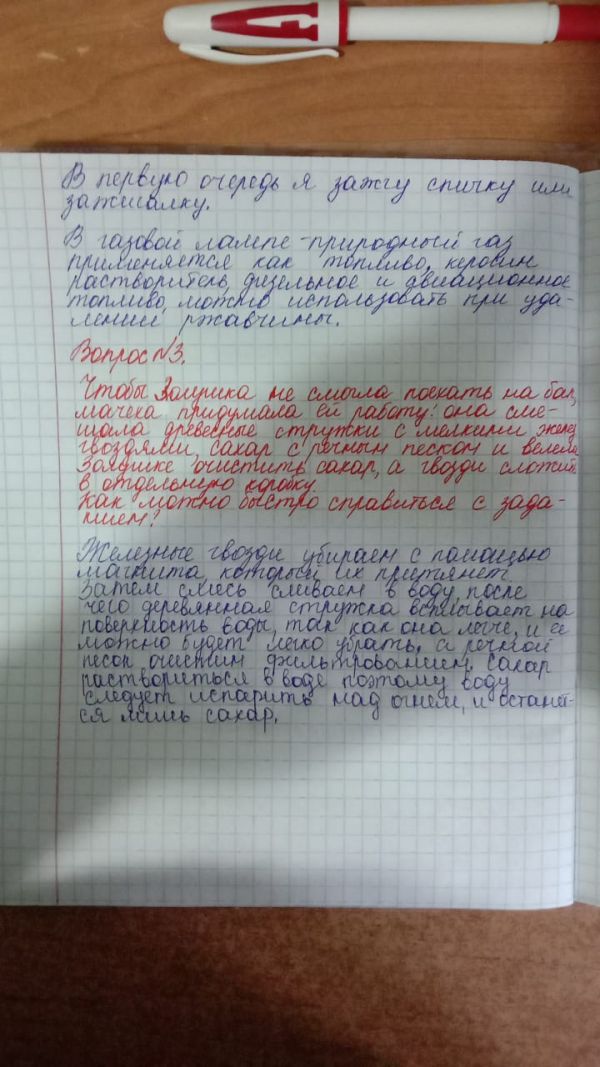 В первую очередь я зажгу спичку или
зажигалку.
В газовой лампе - природный газ
применяется как топливо, керосин
растворитель, дизельное и авиационное
топливо, можно использовать при уда-
лении ржавчины.
Вопрос №3.
Чтобы Золушка не смогла поехать на бал,
мачеха придумала ей работу: она сме-
шала древесные стружки с мелкими желез
гвоздями, сахар с речным песком и велела
Золушке очистить сахар, а гвозди сложить
в отдельную коробку.
Как можно быстро справиться с зада-
нием?
Железные гвозди убираем с помощью
магнита, который их притянет.
Затем смесь сливаем в воду, после
чего деревянная стружка всплывает на
поверхность воды, так как она легче, и её
можно будет легко убрать, а речной
песок очистим фильтрованием. Сахар
раствориться в воде поэтому воду
следует испарить над огнём, и останет-
ся лишь сахар.